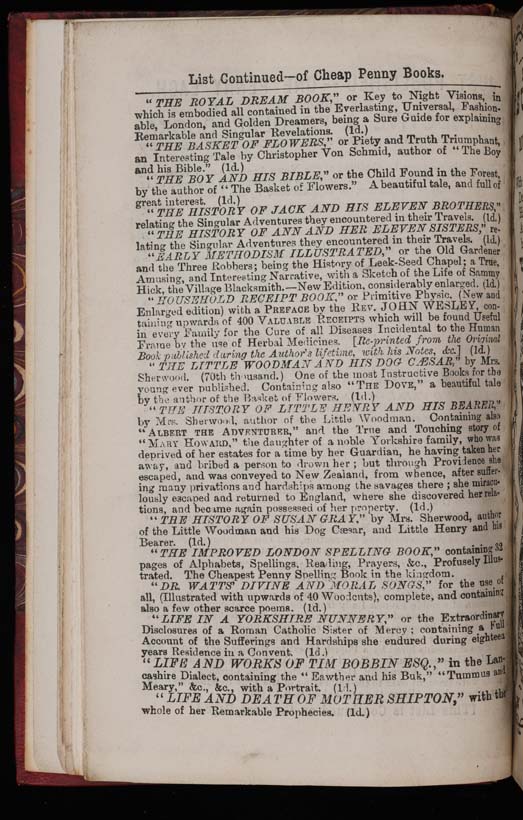 List Continued—of Cheap Penny Books.
"THE ROYAL DREAM BOOK," or Key to Night Visions, in
which is embodied all contained in the Everlasting, Universal, Fashion-
able, London, and Golden Dreamers, being a Sure Guide for explaining
Remarkable and Singular Revelations. (1d.)
"THE BASKET OF FLOWERS," or Piety and Truth Triumphant,
an Interesting Tale by Christopher Von Schmid, author of "The Boy
and his Bible." (1d.)
"THE BOY AND HIS BIBLE," or the Child Found in the Forest,
by the author of "The Basket of Flowers." A beautiful tale, and full of
great interest. (1d.)
"THE HISTORY OF JACK AND HIS ELEVEN BROTHERS,"
relating the Singular Adventures they encountered in their Travels. (1d.)
"THE HISTORY OF ANN AND HER ELEVEN SISTERS," re-
lating the Singular Adventures they encountered in their Travels. (1d.)
"EARLY METHODISM ILLUSTRATED," or the Old Gardener
and the Three Robbers; being the History of Leek-Seed Chapel; a True,
Amusing, and Interesting Narrative, with a Sketch of the Life of Sammy
Hick, the Village Blacksmith.—New Edition, considerably enlarged. (1d.)
"HOUSEHOLD RECEIPT BOOK," or Primitive Physic. (New and
Enlarged edition) with a PREFACE by the REV. JOHN WESLEY, con-
taining upwards of 400 VALUABLE RECEIPTS which will be found Useful
in every Family for the Cure of all Diseases Incidental to the Human
Frame by the use of Herbal Medicines. [Re-printed from the Original
Book published during the Author's lifetime, with his Notes, &c.] (1d.)
"THE LITTLE WOODMAN AND HIS DOG CÆSAR," by Mrs.
Sherwood. (70th thousand.) One of the most Instructive Books for the
young ever published. Containing also "THE DOVE," a beautiful tale
by the author of the Basket of Flowers. (1d.)
"THE HISTORY OF LITTLE HENRY AND HIS BEARER,"
by Mrs. Sherwood, author of the Little Woodman. Containing also
"ALBERT THE ADVENTURER," and the True and Touching story of
"MARY HOWARD," the daughter of a noble Yorkshire family, who was
deprived of her estates for a time by her Guardian, he having taken her
away, and bribed a person to drown her; but through Providence she
escaped, and was conveyed to New Zealand, from whence, after suffer-
ing many privations and hardships among the savages there; she miracu-
lously escaped and returned to England, where she discovered her rela-
tions, and became again possessed of her property. (1d.)
"THE HISTORY OF SUSAN GRAY," by Mrs. Sherwood, author
of the Little Woodman and his Dog Cæsar, and Little Henry and his
Bearer. (1d.)
"THE IMPROVED LONDON SPELLING BOOK," containing 32
pages of Alphabets, Spellings, Reading, Prayers, &c., Profusely Illus-
trated. The Cheapest Penny Spelling Book in the kingdom.
"DR. WATTS' DIVINE AND MORAL SONGS," for the use of
all, (Illustrated with upwards of 40 Woodcuts), complete, and containing
also a few other scarce poems. (1d.)
"LIFE IN A YORKSHIRE NUNNERY," or the Extraordinary
Disclosures of a Roman Catholic Sister of Mercy; containing a Full
Account of the Sufferings and Hardships she endured during eighteen
years Residence in a Convent. (1d.)
"LIFE AND WORKS OF TIM BOBBIN ESQ.," in the Lan-
cashire Dialect, containing the "Eawther and his Buk," "Tummus and
Meary," &c., &c., with a Portrait. (1d.)
"LIFE AND DEATH OF MOTHER SHIPTON," with the
whole of her Remarkable Prophecies. (1d.)